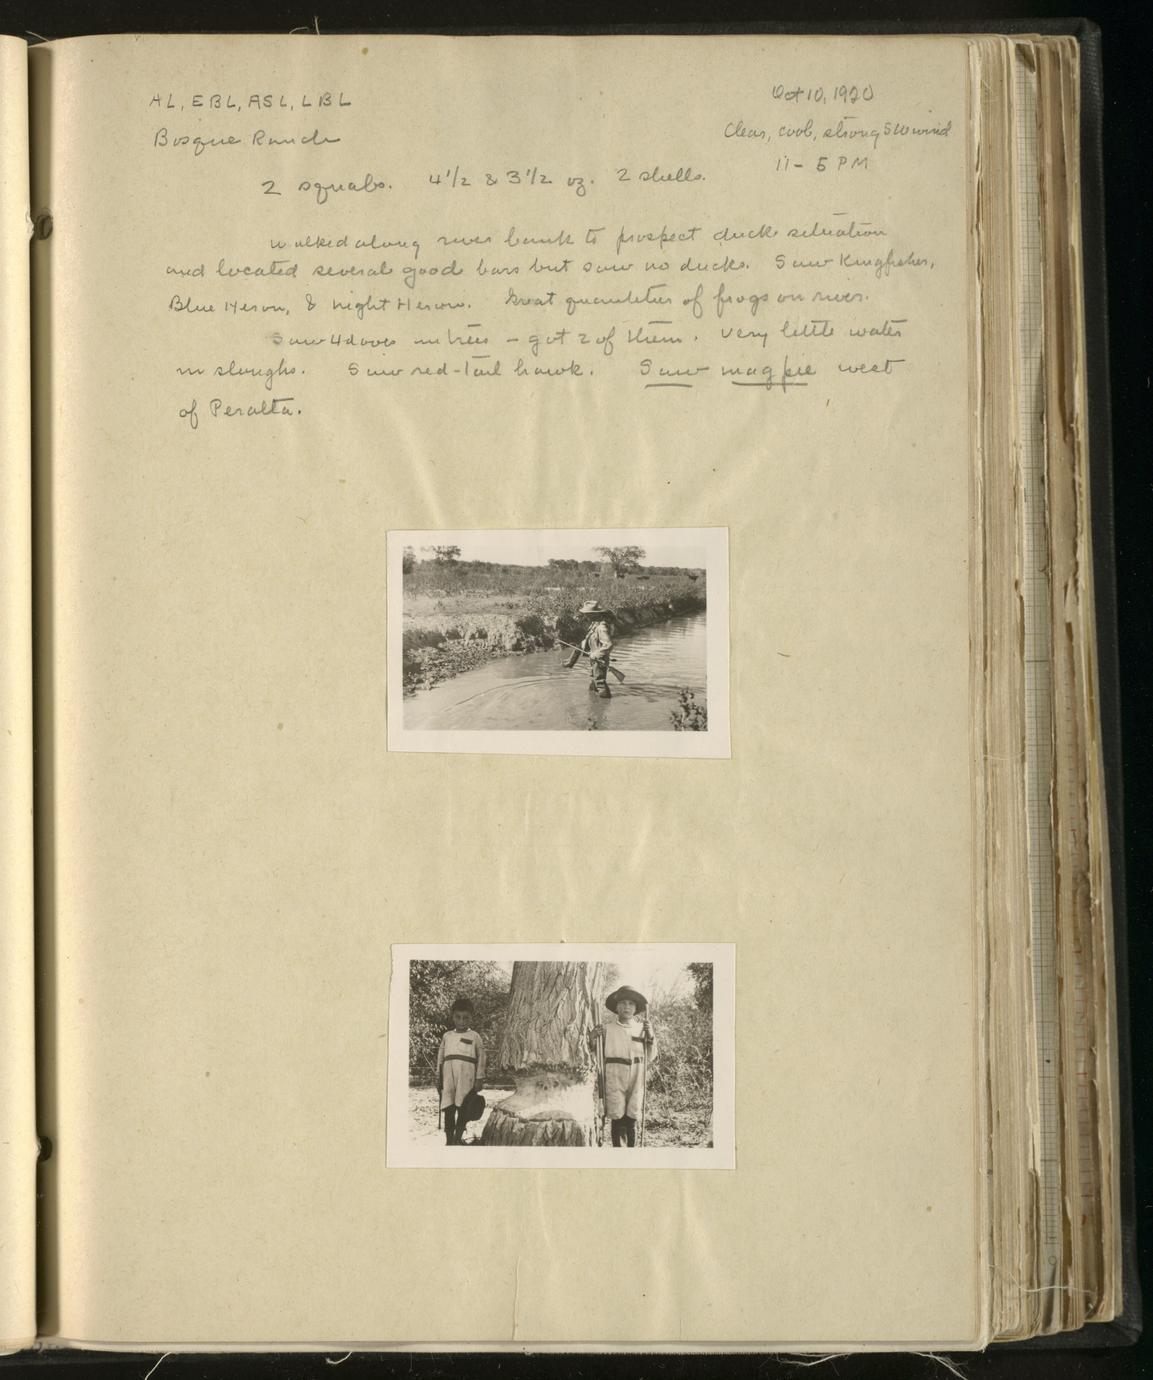 AL, EBL, ASL, LBL
Oct 10, 1920
Bosque Ranch
Clear, cool, strong SW wind
11 - 5 PM
2 squabs. 4 1/2 & 3 1/2 oz. 2 shells.
Walked along river bank to prospect duck situation
and located several good bars but saw no ducks. Saw Kingfisher,
Blue Heron, & Night Heron. Great quantities of frogs on river.
Saw 4 doves in trees - got 2 of them. Very little water
in sloughs. Saw red-tail hawk. Saw magpie west
of Peralta.